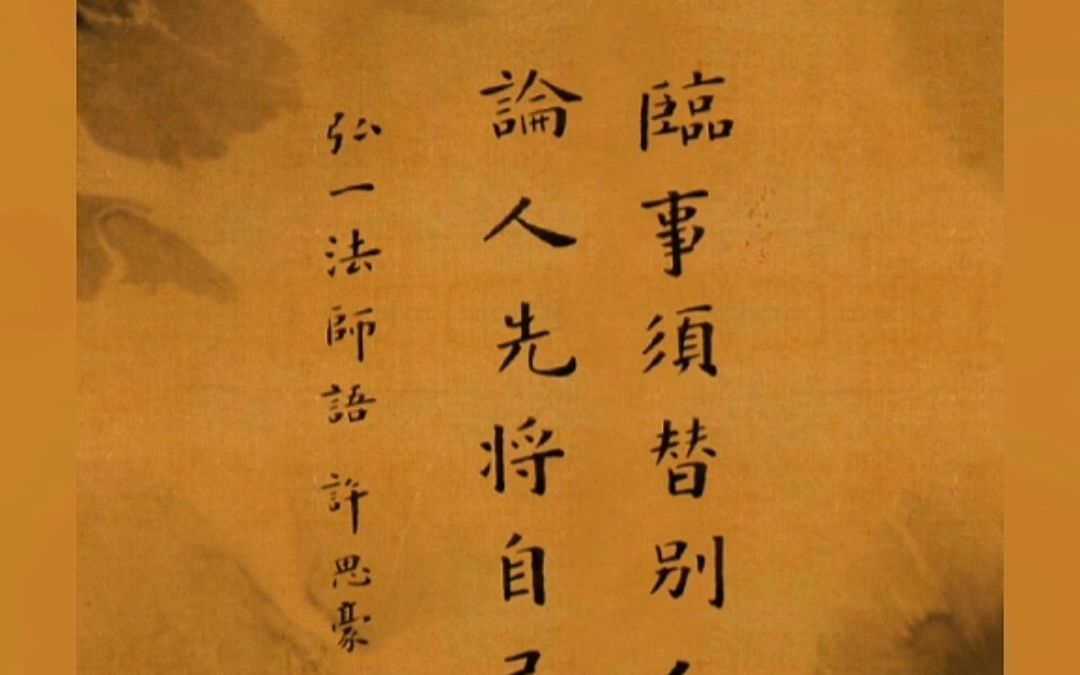 臨事須替別
論人先将自
弘一法師語 許思豪